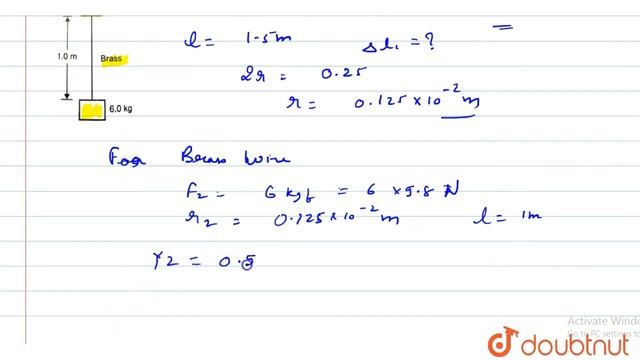 1.0 m
Brass
6.0 kg
l = 1.5m Δl₁ = ?
2r = 0.25
r = 0.125 × 10⁻² m
For Brass wire
F₂ = 6 kgf = 6 × 9.8 N
r₂ = 0.125 × 10⁻² m l = 1m
Y2 = 0.5
Activate Windows
Go to PC settings to
doubtnut